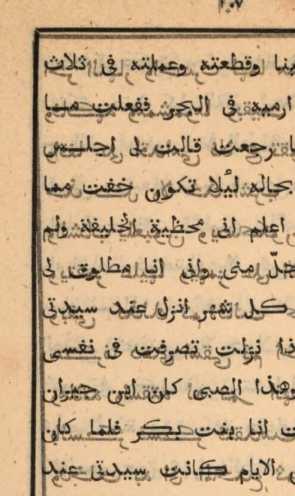 ١٠٧
منا اوقطعته وعملته فى ثلاث
ارميه فى البحر ففعلت مما
رجعت قالت لى اجلس
بحاله ليلا تكون خفت مما
اعلم انى محظية الخليفة ولم
منى وانى انيا مطلوق لى
كل شهر انزل عند سيدتى
نزلت تصرفت فى نفسى
وهذا الصبى كان ابن جيران
انا بنت بكر فلما كان
الايام كانت سيدتى عند